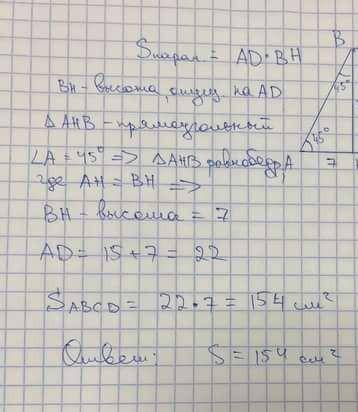 Sпарал = AD · BH
B
BH - высота, опущ. на AD
45°
△AHB - прямоугольный
∠A = 45° => △AHB равнобедр,
45°
A
7
где AH = BH =>
BH - высота = 7
AD = 15 + 7 = 22
SABCD = 22 · 7 = 154 см²
Ответ: S = 154 см²